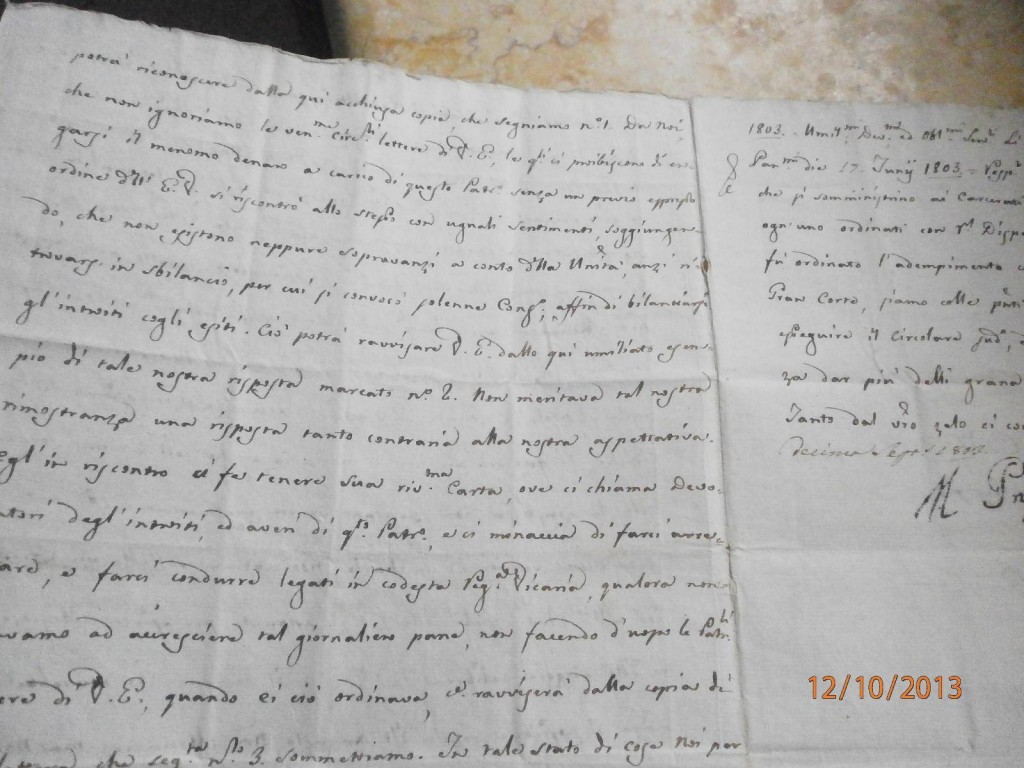 potrà riconoscere dalla qui acchiusa copia che segniamo n.º 1. Da Noi,
che non ignoriamo le ven.me Circ.li lettere di V. E., le q.li ci proibiscono di ero-
garsi il menomo denaro a carico di questo Patr.º senza un previo espresso
ordine dell' E. V. si riscontrò allo stesso con uguali sentimenti, soggiungen-
do, che non esistono neppure sopravanzi a conto della Unità, anzi ri-
trovarsi in sbilancio, per cui si convocò solenne Cong.º, affin di bilanciarsi
gl'introiti cogli esiti. Ciò potrà ravvisare V. E. dallo qui umiliato esem-
pio di tale nostra risposta marcato n.º 2. Non meritava tal nostra
rimostranza una risposta tanto contraria alla nostra aspettativa.
Egl'in riscontro ci fe tenere sua riv.ma Carta, ove ci chiama Devo-
ratori degl'introiti, ed averi di q.sto Patr.º, e ci minaccia di farci arre-
are, e farci condurre legati in codesta Reg.a Vicaria, qualora non
vamo ad accrescere tal giornaliero pane, non facendo d'uopo le Patr.li
ere di V. E., quando ei ciò ordinava, c.e ravviserà dalla copia di
che seg.ta n.º 3. sommettiamo. In tale stato di cose Noi per
1803. Umil.mi Dev.mi ed Obl.mi Ser.i
Pan.mi die 17. Junij 1803. =
che si somministrino ai Carcerati
ogn'uno ordinati con r.l Disp
fù ordinato l'adempimento
Gran Corte, siamo colle p.nti
eseguire il Circolare sud.º,
za dar più delli grana
Tanto dal v.ro zelo ci
Decima Sept. 1803.
12/10/2013